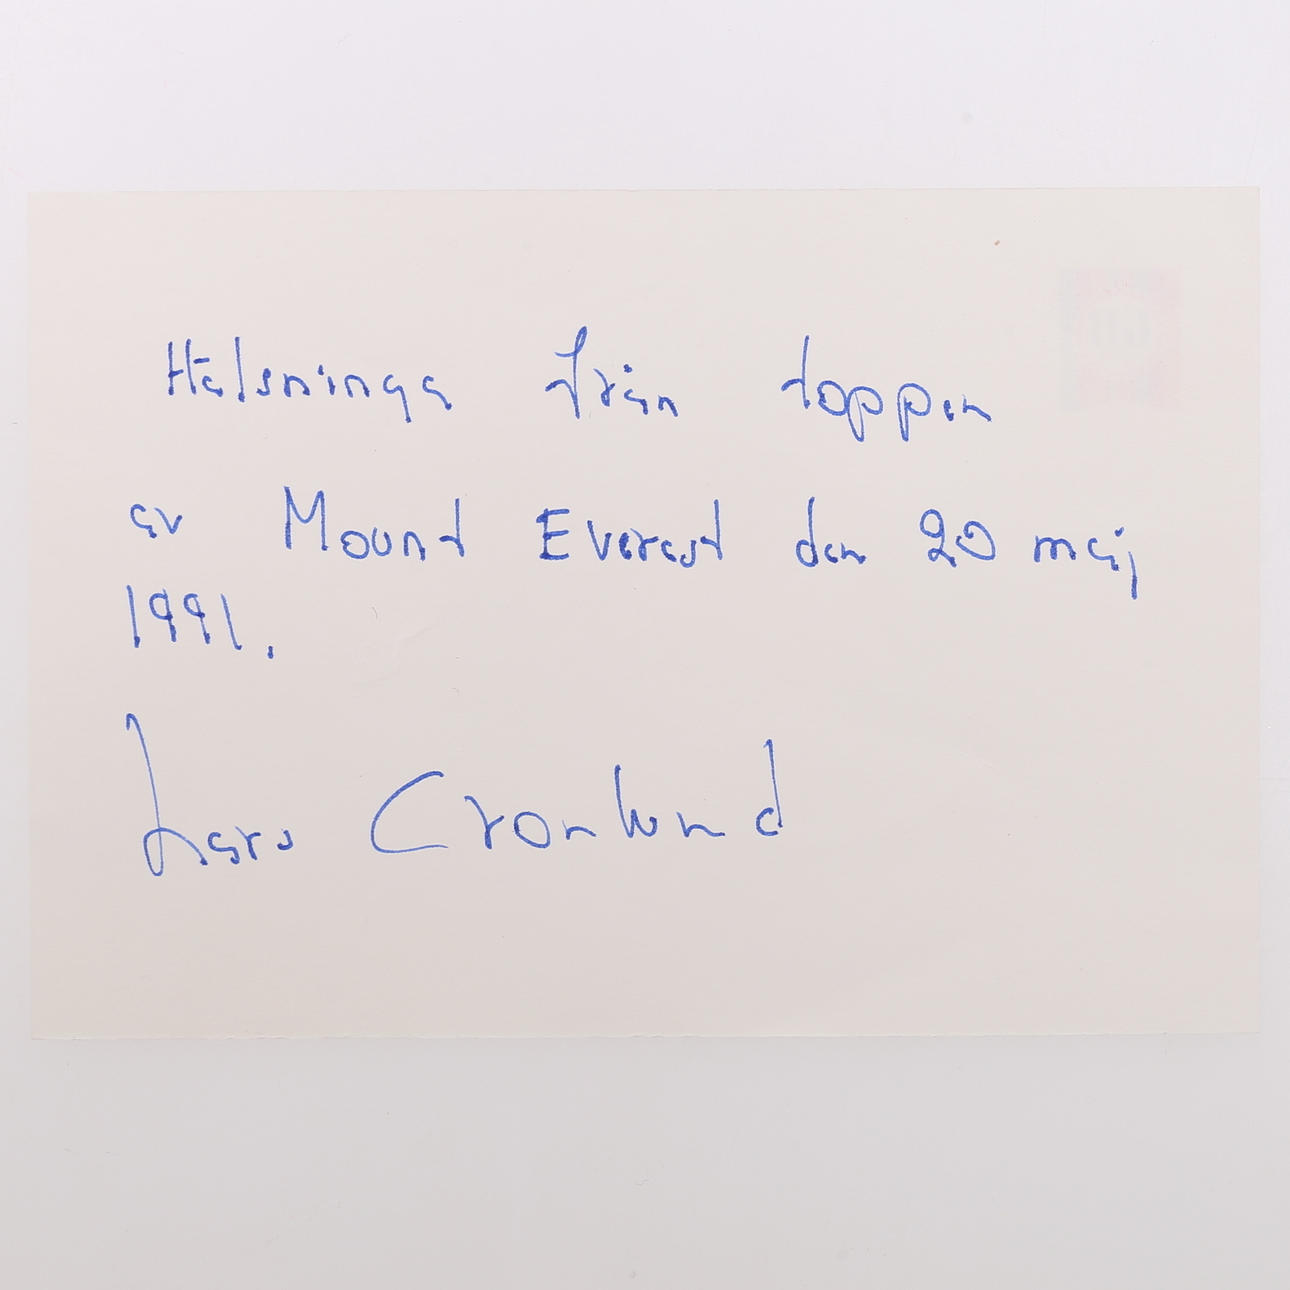 Hälsninga från toppen
av Mount Everest den 20 maj
1991.
Lars Cronlund